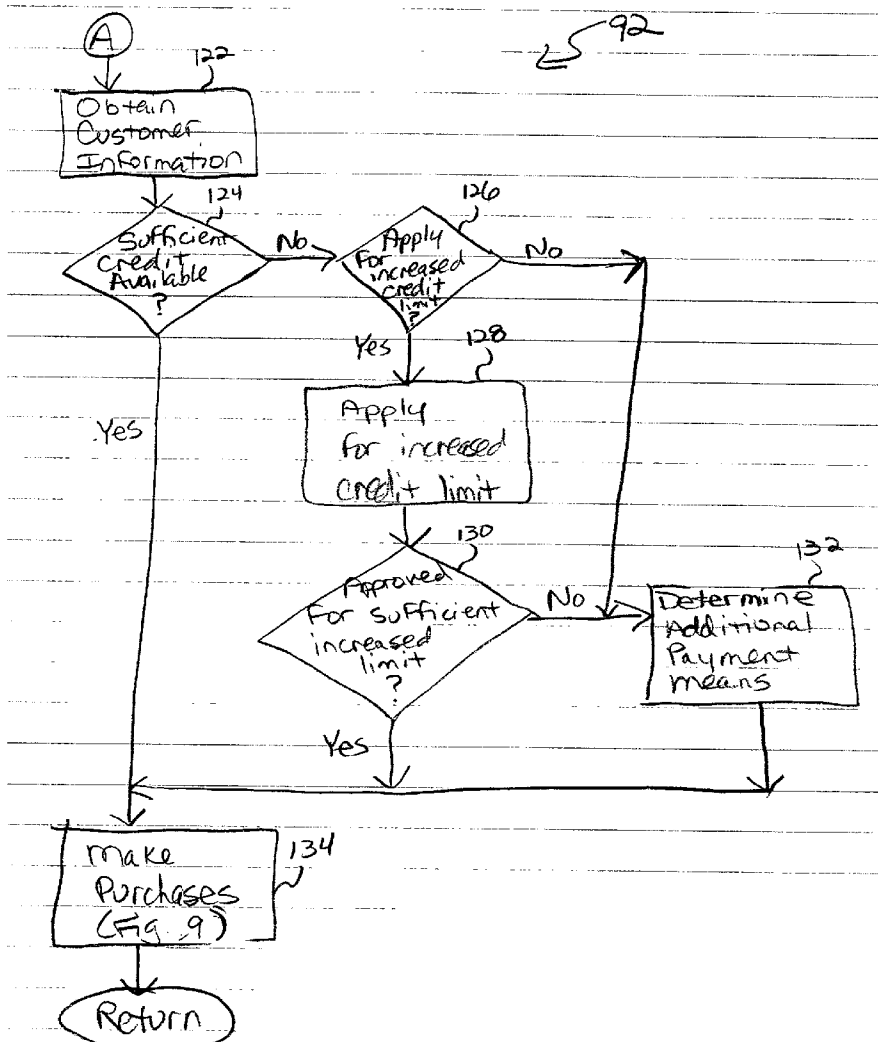 A
92
122
Obtain
Customer
Information
124
Sufficient
Credit
Available
?
No
126
Apply
For
increased
credit
limit
?
No
Yes
128
Apply
For increased
credit limit
Yes
130
Approved
For sufficient
increased
limit
?
No
132
Determine
Additional
Payment
means
Yes
make
Purchases
(Fig. 9)
134
Return